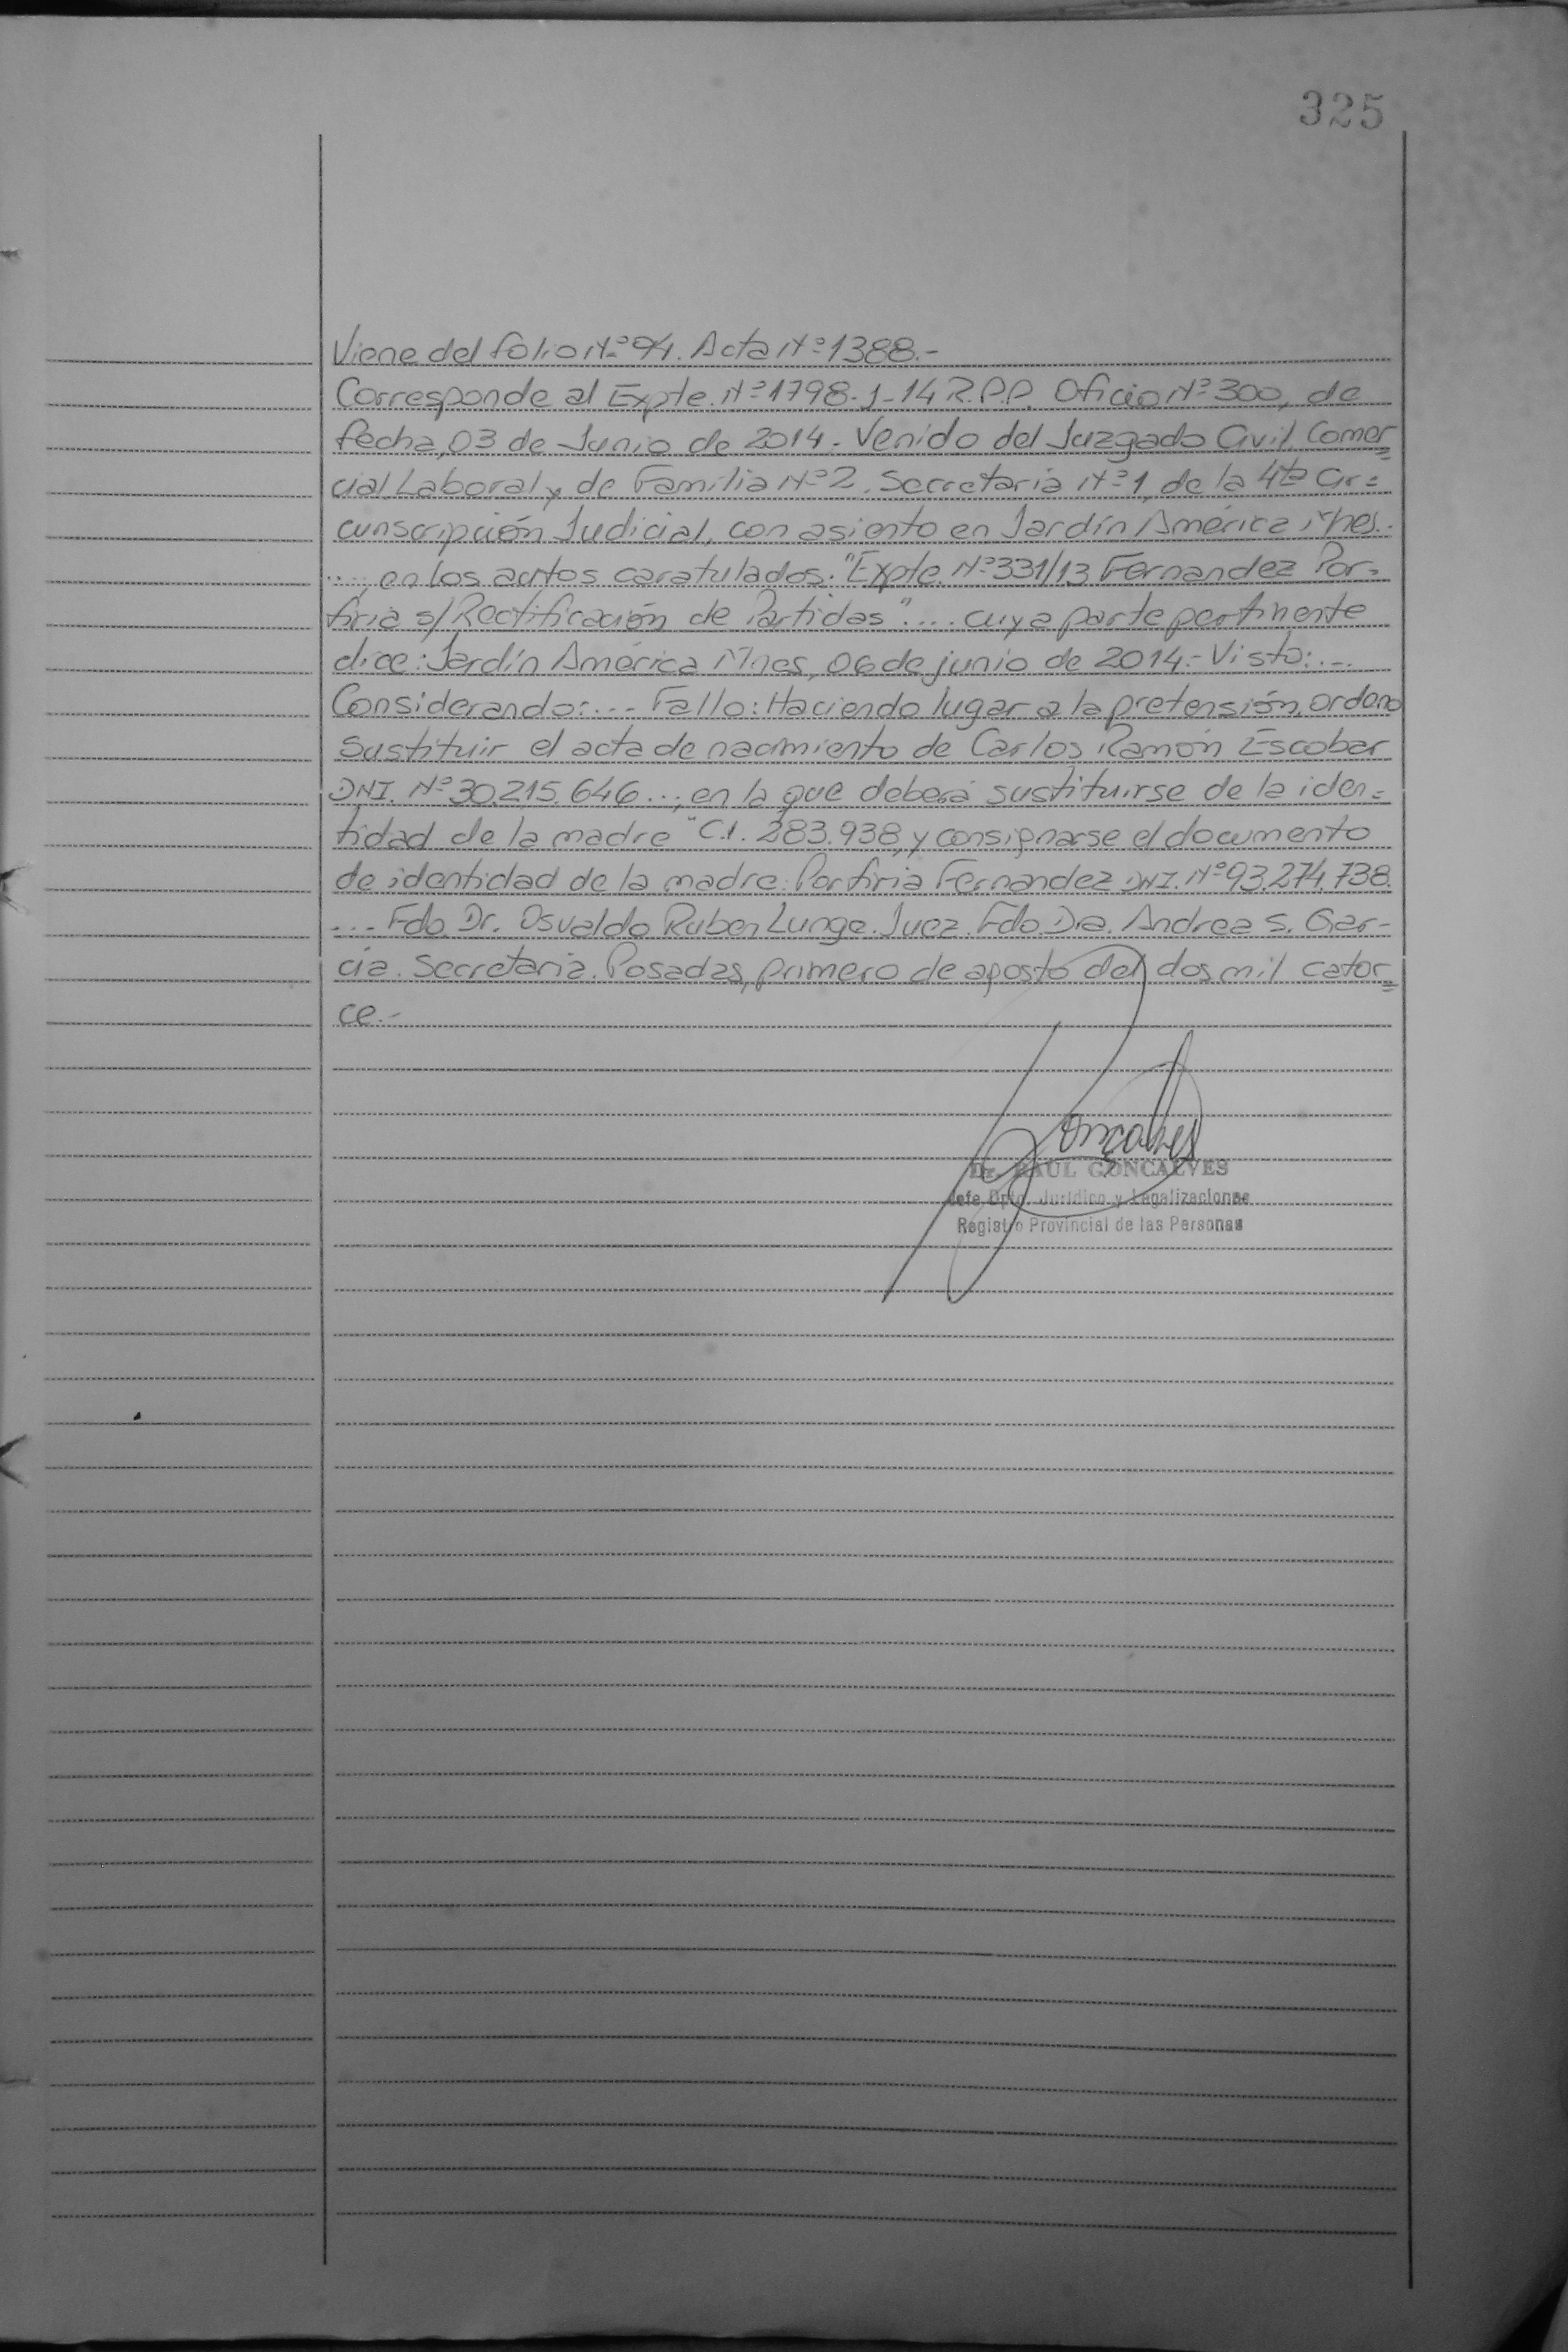 325
Viene del folio Nº 94. Acta Nº 1388.-
Corresponde al Expte. Nº 1798-J-14 R.P.P. Oficio Nº 300, de
fecha, 03 de Junio de 2014.- Venido del Juzgado Civil, Comer=
cial, Laboral y de Familia Nº 2. Secretaria Nº 1, de la 4ta Cir=
cunscripción Judicial, con asiento en Jardín América Mnes.
...., en los autos caratulados: "Expte. Nº 331/13 Fernandez Por=
firia s/ Rectificación de Partidas" .... cuya parte pertinente
dice: Jardín América Mnes, 06 de junio de 2014.- Visto: ....
Considerando: .... Fallo: Haciendo lugar a la pretensión, ordeno
sustituir el acta de nacimiento de Carlos Ramón Escobar
DNI. Nº 30.215.646 ..., en la que deberá sustituirse de la iden=
tidad de la madre "C.I. 283.938, y consignarse el documento
de identidad de la madre: Porfiria Fernandez DNI. Nº 93.274.738.
.... Fdo. Dr. Osvaldo Ruben Lunge. Juez. Fdo. Dra. Andrea S. Gar-
cia. Secretaria. Posadas, primero de agosto del dos mil cator=
ce.-
Dr. RAUL GONCALVES
Jefe Dpto. Jurídico y Legalizaciones
Registro Provincial de las Personas